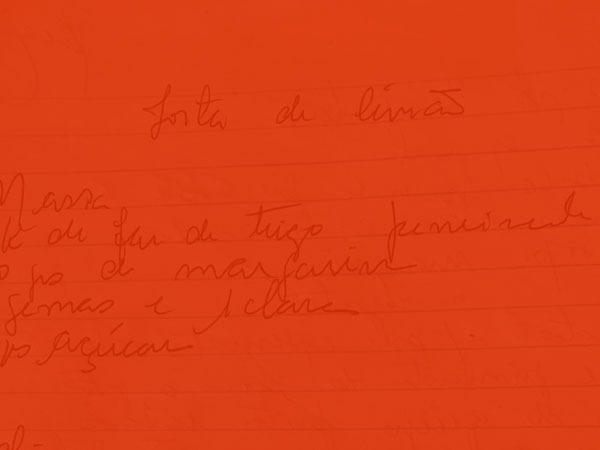 Torta de limão
Massa
k de far de trigo peneirada
gs de margarina
gemas e 1 clara
gs açúcar